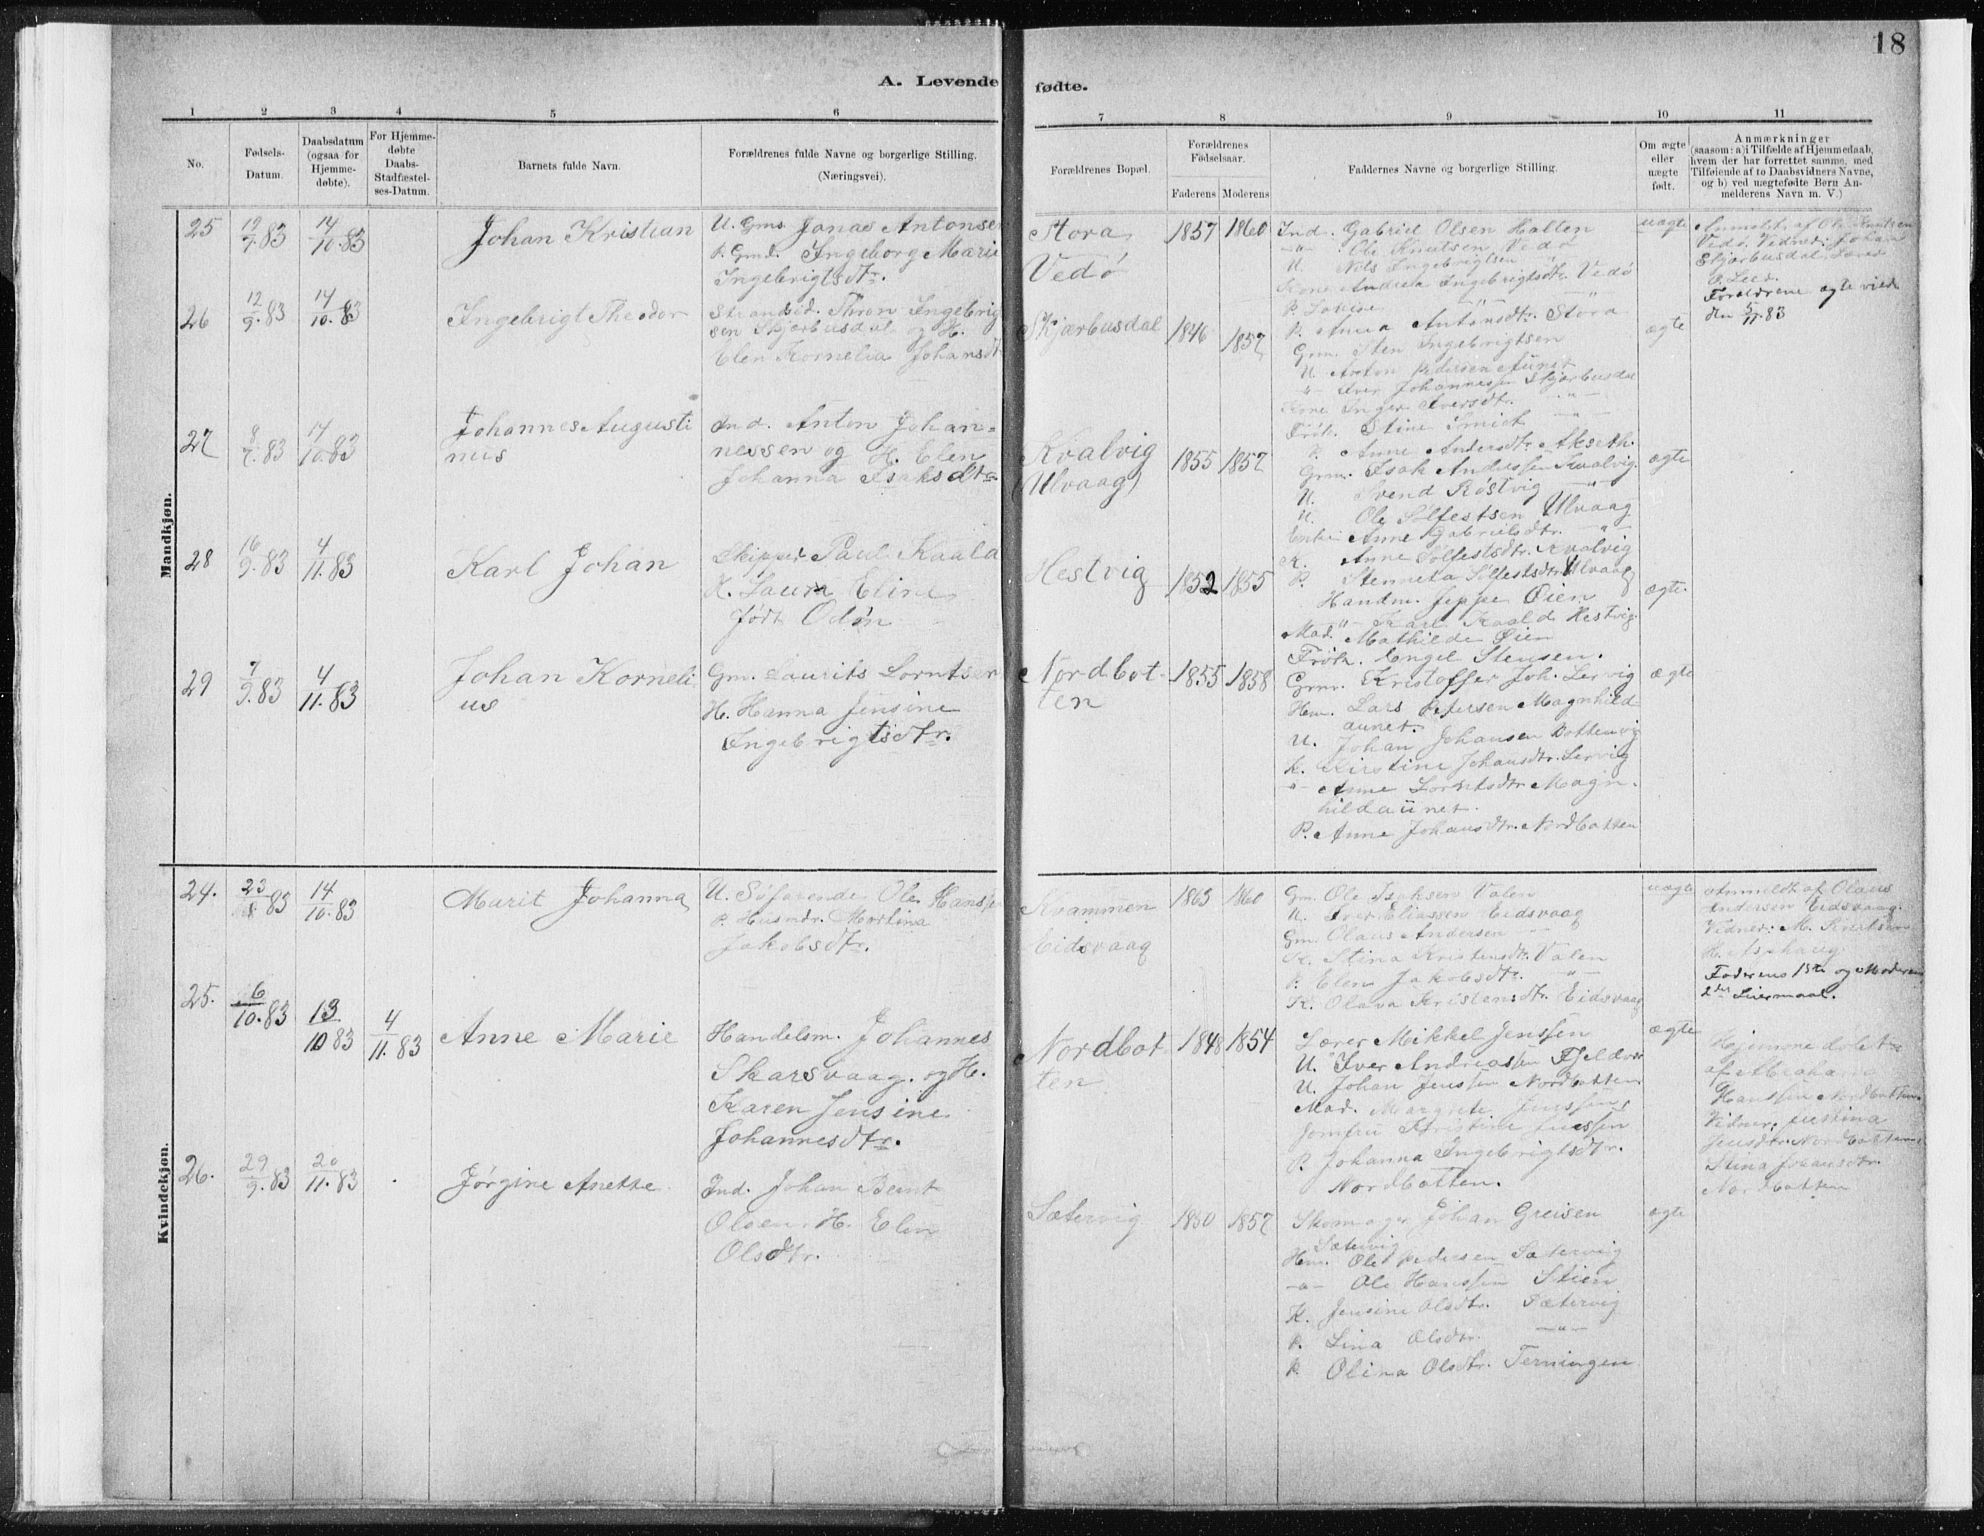 18
A. Levende fødte.
1 2 3 4 5 6 7 8 9 10 11
No.
Fødsels-
Datum.
Daabsdatum
(ogsaa for
Hjemme-
døbte).
For Hjemme-
døbte
Daabs-
Stadfæstel-
ses-Datum.
Barnets fulde Navn.
Forældrenes fulde Navne og borgerlige Stilling.
(Næringsvei).
Forældrenes Bopæl.
Forældrenes
Fødselsaar.
Faderens Moderens
Faddernes Navne og borgerlige Stilling.
Om ægte
eller
uægte
født.
Anmærkninger
(saasom: a) i Tilfælde af Hjemmedaab,
hvem der har forrettet samme, med
Tilføiende af to Daabsvidners Navne,
og b) ved uægtefødte Børn An-
melderens Navn m. V.)
Mandkjøn.
25
83
14/10.83
Johan Kristian
U. Gms. Jonas Antonsen
P. Gmd. Ingeborg Marie
Ingebrigtsdtr.
Stora
Vedø
1857 1860
Ind. Gabriel Olsen Halten
-"- Ole Knutsen Vedø
U. Nils Ingebrigtsen -"-
Kone Andrea Ingebrigtsdtr. Vedø
P. Lovise -"-
P. Anna Antonsdtr. Stora
uægte
Anmeldt af Ole Knutsen
Vedø. Vidner: Johan
Skjærbusdal, Lærer
Forældrene ægteviede
den 5/11.83
26
12/9.83
14/10.83
Ingebrigt Theodor
Strandsid. Thron Ingebrigt
sen Skjærbusdal og H.
Elen Kornelia Johansdtr
Skjærbusdal
1846 1857
Grm. Sten Ingebrigtsen
U. Anton Pedersen Aunet
-"- Iver Johannessen Skjærbusdal
Kone Inger Iversdtr. -"-
Frøk. Stine Smich -"-
P. Anne Andersdtr. Akseth.
ægte
27
83
14/10.83
Johannes Augusti
nus
Ind. Anton Johan=
nessen og H. Elen
Johanna Isaksdtr.
Kvalvig
(Ulvaag)
1855 1857
Grm. Isak Anderssen Kvalvig
U. Svend Røstvig -"-
U. Ole Sølfestsen Ulvaag
Enke Anne Gabrielsdtr. -"-
K. Anne Sølfestsdtr. Kvalvig
P. Stenneta Sølfestsdtr. Ulvaag
ægte
28
16/9.83
4/11.83
Karl Johan
Skipper Paul Kaald
H. Laura Eline
født Odøn
Hestvig
1852 1855
Handm. Jeppe Øien
-"- Karl Kaald Hestvig
Mad. Mathilde Øien
Frøk. Engel Stensen.
ægte.
29
7/9.83
4/11.83
Johan Korneli
us
Gm. Laurits Lorntsen
H. Hanna Jensine
Ingebrigtsdtr.
Nordbot-
ten
1855 1858
Grm. Kristoffer Joh. Lervig
Hm. Lars Petersen Magnhild-
aunet.
U. Johan Johansen Bottenvig
K. Kirstine Johansdtr. Lervig
-"- Anne Lorntsdtr. Magn-
hildaunet.
P. Anne Johansdtr. Nordbotten
ægte
Kvindekjøn.
24.
83
14/10.83
Marit Johanna
U. Søfarende Ole Hanssen
P. Husmdr. Martina
Jakobsdtr.
Kvammen
Eidsvaag
1863 1860
Gm. Ole Isaksen Valen
U. Iver Eliassen Eidsvaag
Gm. Olaus Andersen -"-
K. Stina Kristensdtr. Valen
P. Elen Jakobsdtr. -"-
K. Olava Kristensdtr. Eidsvaag
uægte
Anmeldt af Olaus
Andersen Eidsvaag.
Vidner: M. Knutsen
H. Ashaug
Faderens 1ste og Moderens
2det Leiermaal.
25.
6/10.83
13/10 83
4/11.83
Anne Marie
Handelsm. Johannes
Skarsvaag. og H.
Karen Jensine
Johannesdtr.
Nordbot
ten
1848 1854
Lærer Mikkel Jenssen
U. Iver Andreassen Fjeldvær
U. Johan Jenssen Nordbotten
Mad. Margrete Jenssen
Jomfru Kristine Jenssen
P. Johanna Ingebrigtsdtr.
Nordbotten.
ægte
Hjemmedøbt
af Abraham
Hanssen Nordbotten
Vidner: Justina
Jensdtr. Nordbotten
Stina Johansdtr.
Nordbotten
26.
29/9.83
20/11.83
Jørgine Anette
Ind. Johan Bernt
Olsen. H. Elen
Olsdtr.
Sætervig
1850 1857
Skomager Johan Greisen
Sætervig
Hm. Ole Pedersen Sætervig
-"- Ole Hanssen Stien
K. Jensine Olsdtr. Sætervig
P. Lina Olsdtr. -"-
P. Olina Olsdtr. Terningen
ægte